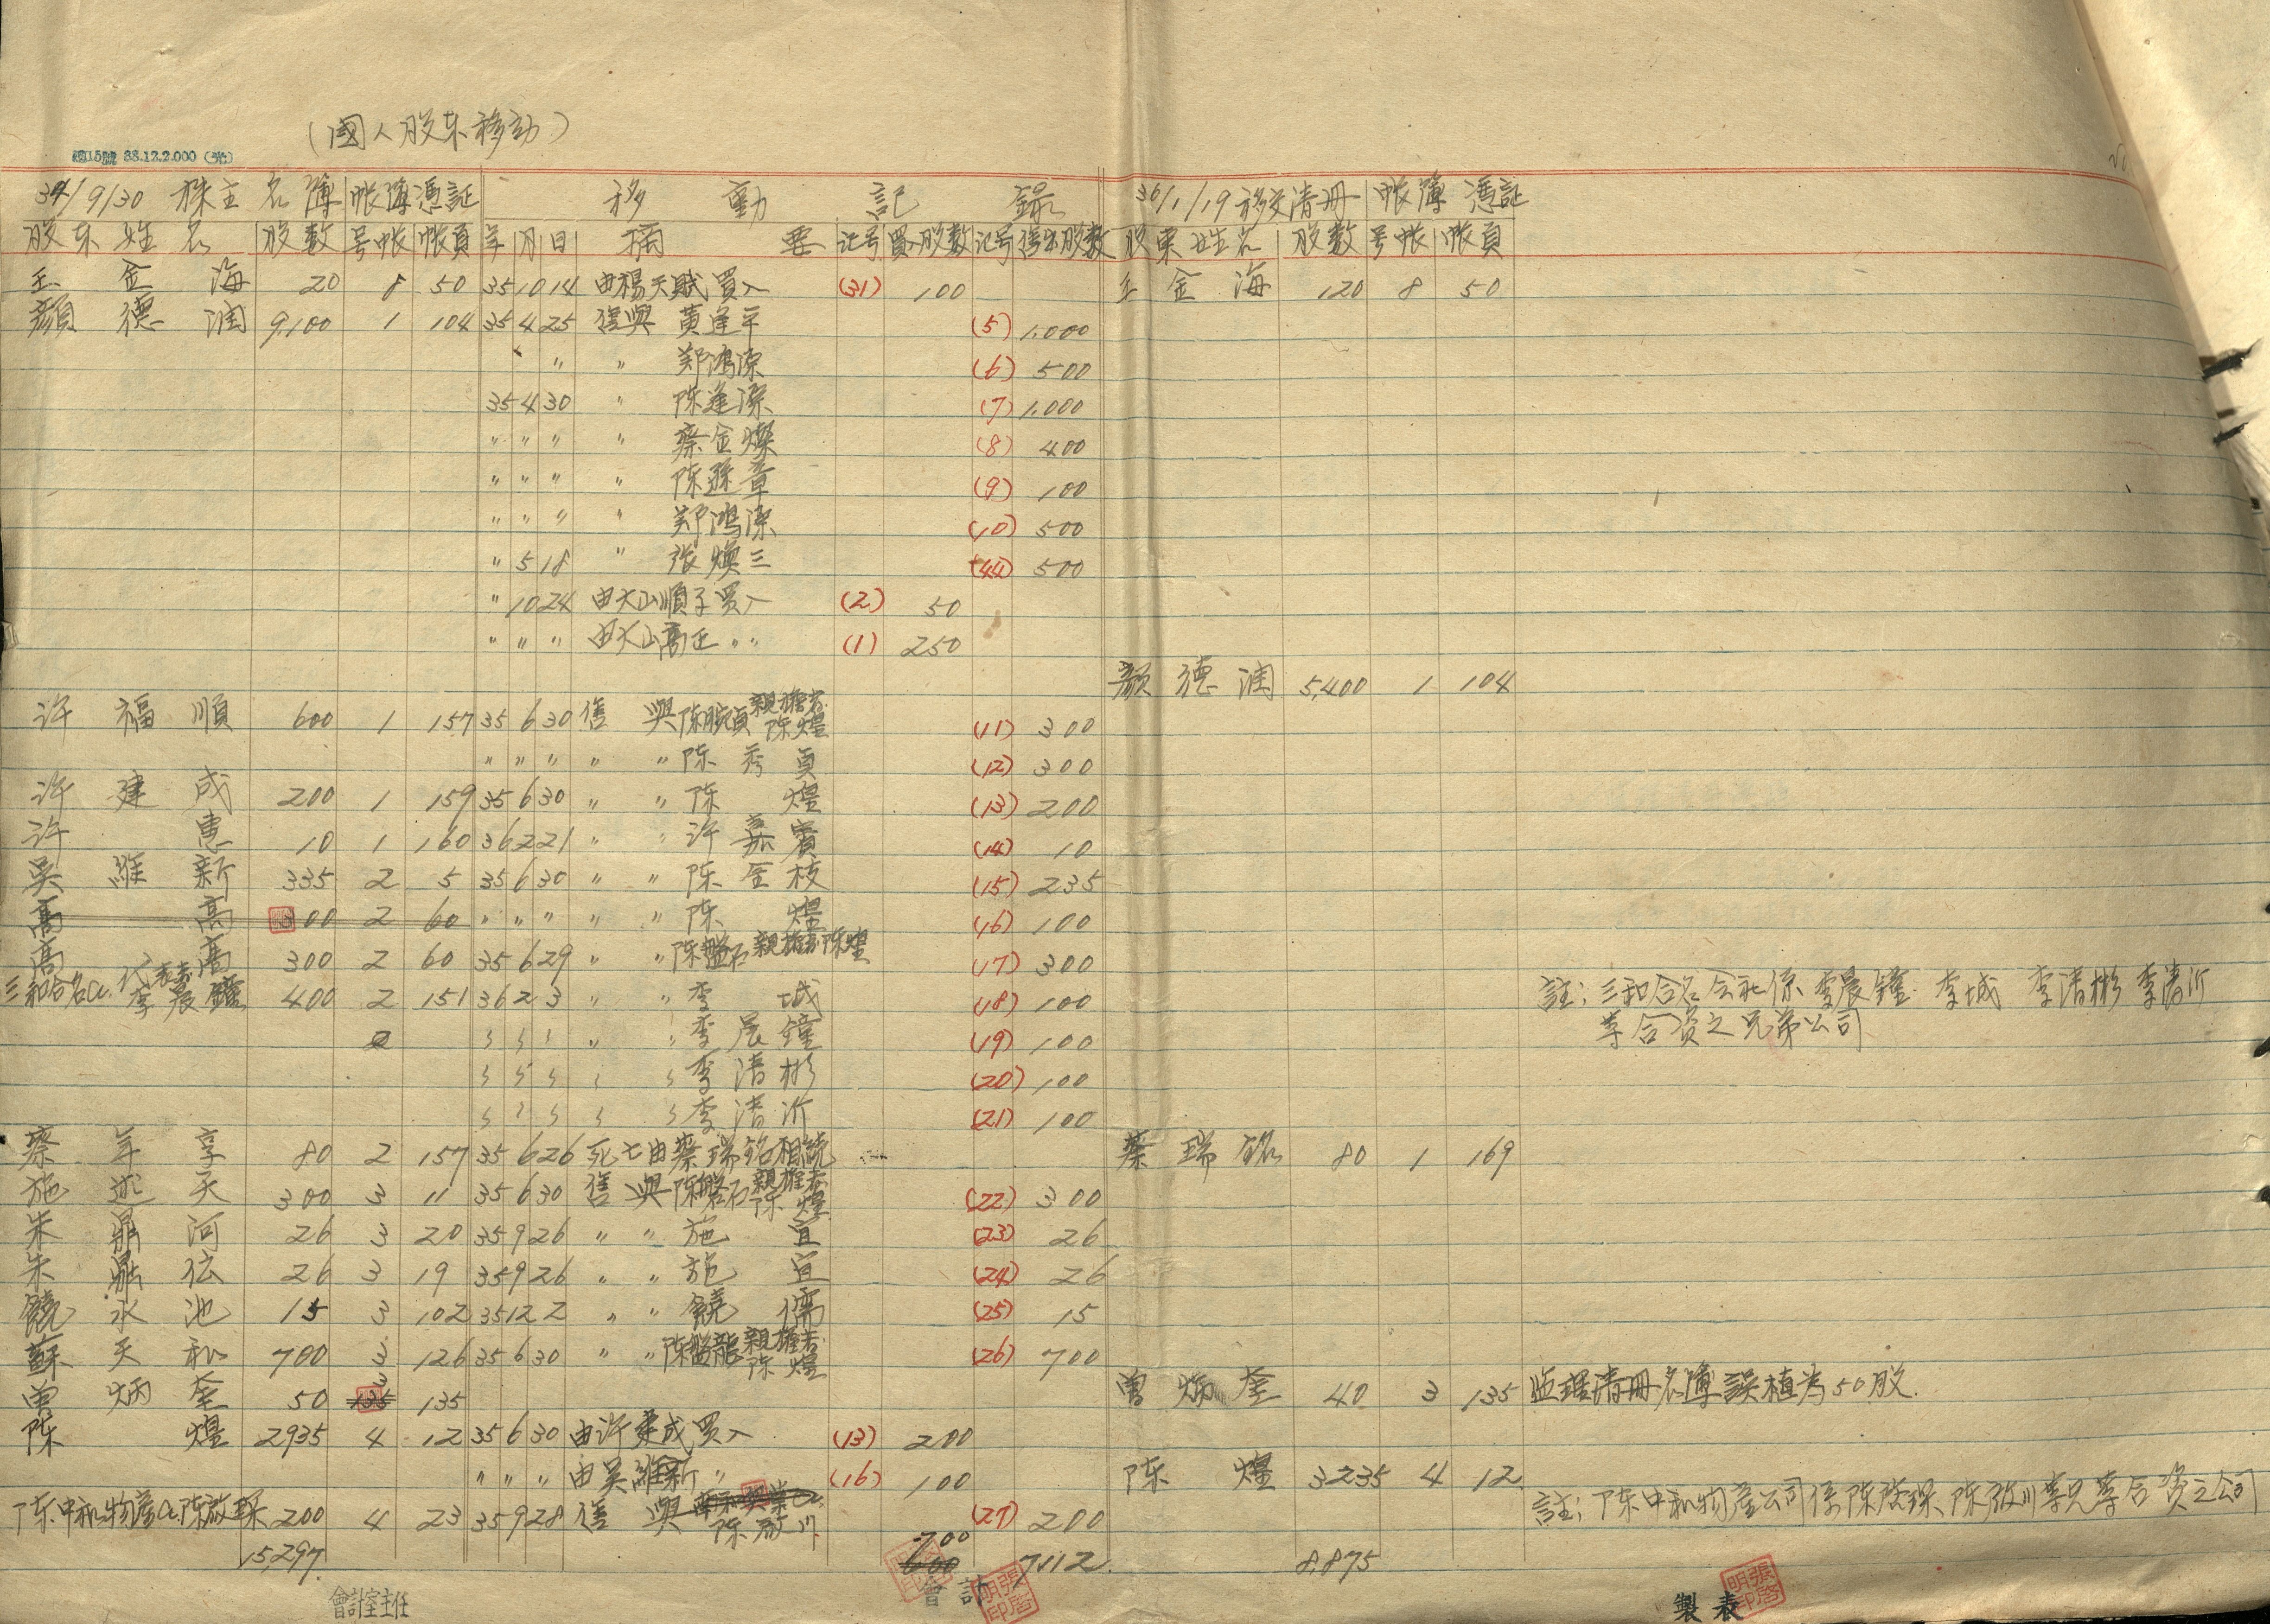 (國人股东移动)
34/9/30 株主名簿 帐簿憑証 移動記録 36/1/19移交清册 帐簿憑証
股东姓名 股数 号帐 帐頁 年 月 日 摘要 记号 買入股数 记号 售出股数 股東姓名 股数 号帐 帐頁
王金海 20 8 50 35 10 14 由楊天賦買入 (31) 100 王金海 120 8 50
顏德润 9,100 1 104 35 4 25 售與 黄逢平 (5) 1,000
〃 〃 郑鴻源 (6) 500
35 4 30 〃 陈逢源 (7) 1,000
〃 〃 〃 〃 蔡金燦 (8) 400
〃 〃 〃 〃 陈遜章 (9) 100
〃 〃 〃 〃 郑鴻源 (10) 500
〃 5 18 〃 张煥三 (44) 500
〃 10 24 由大山順子買入 (2) 50
〃 〃 〃 由大山高正 〃〃 (1) 250
顏德润 5,400 1 104
许福順 600 1 157 35 6 30 售與陈腕貞親権者陈煌 (11) 300
〃 〃 〃 〃 〃 陈秀貞 (12) 300
许建成 200 1 159 35 6 30 〃 〃 陈煌 (13) 200
许惠 10 1 160 36 2 21 〃 〃 许嘉賓 (14) 10
吳維新 335 2 5 35 6 30 〃 〃 陈金枝 (15) 235
高高 300 2 60 〃 〃 〃 〃 〃 陈煌 (16) 100
高高 300 2 60 35 6 29 〃 〃 陈盤石親権者陈煌 (17) 300
三和合名会.代表者李晨鐘 400 2 151 36 2 3 〃 〃 李城 (18) 100 註:三和合名会社係李晨鐘.李城 李清彬 李清沂
〃 〃 〃 〃 〃 李晨鐘 (19) 100 等合资之兄弟公司
〃 〃 〃 〃 〃 李清彬 (20) 100
〃 〃 〃 〃 〃 李清沂 (21) 100
蔡年享 80 2 157 35 6 26 死亡由蔡瑞銘相続 蔡瑞銘 80 1 169
施述天 300 3 11 35 6 30 售與陈盤石親権者陈煌 (22) 300
朱鼎河 26 3 20 35 9 26 〃 〃 施宜 (23) 26
朱鼎伝 26 3 19 35 9 26 〃 〃 施宜 (24) 26
饒永池 15 3 102 35 12 2 〃 〃 饒儒 (25) 15
蘇天和 700 3 126 35 6 30 〃 〃 陈盤龍親権者陈煌 (26) 700
曽炳奎 50 3 135 曽炳奎 40 3 135 监理清册名簿誤植为50股.
陈煌 2935 4 12 35 6 30 由许建成買入 (13) 200
〃 〃 〃 由吳維新 〃 (16) 100 陈煌 3235 4 12
陈中和物産会.陈啟琛 200 4 23 35 9 28 售與 陈啟川 (27) 200 註:陈中和物産公司係陈啓琛.陈啟川等兄等合资之公司
15,297 700 600 7112 8,875
會計室主任 會計 製表